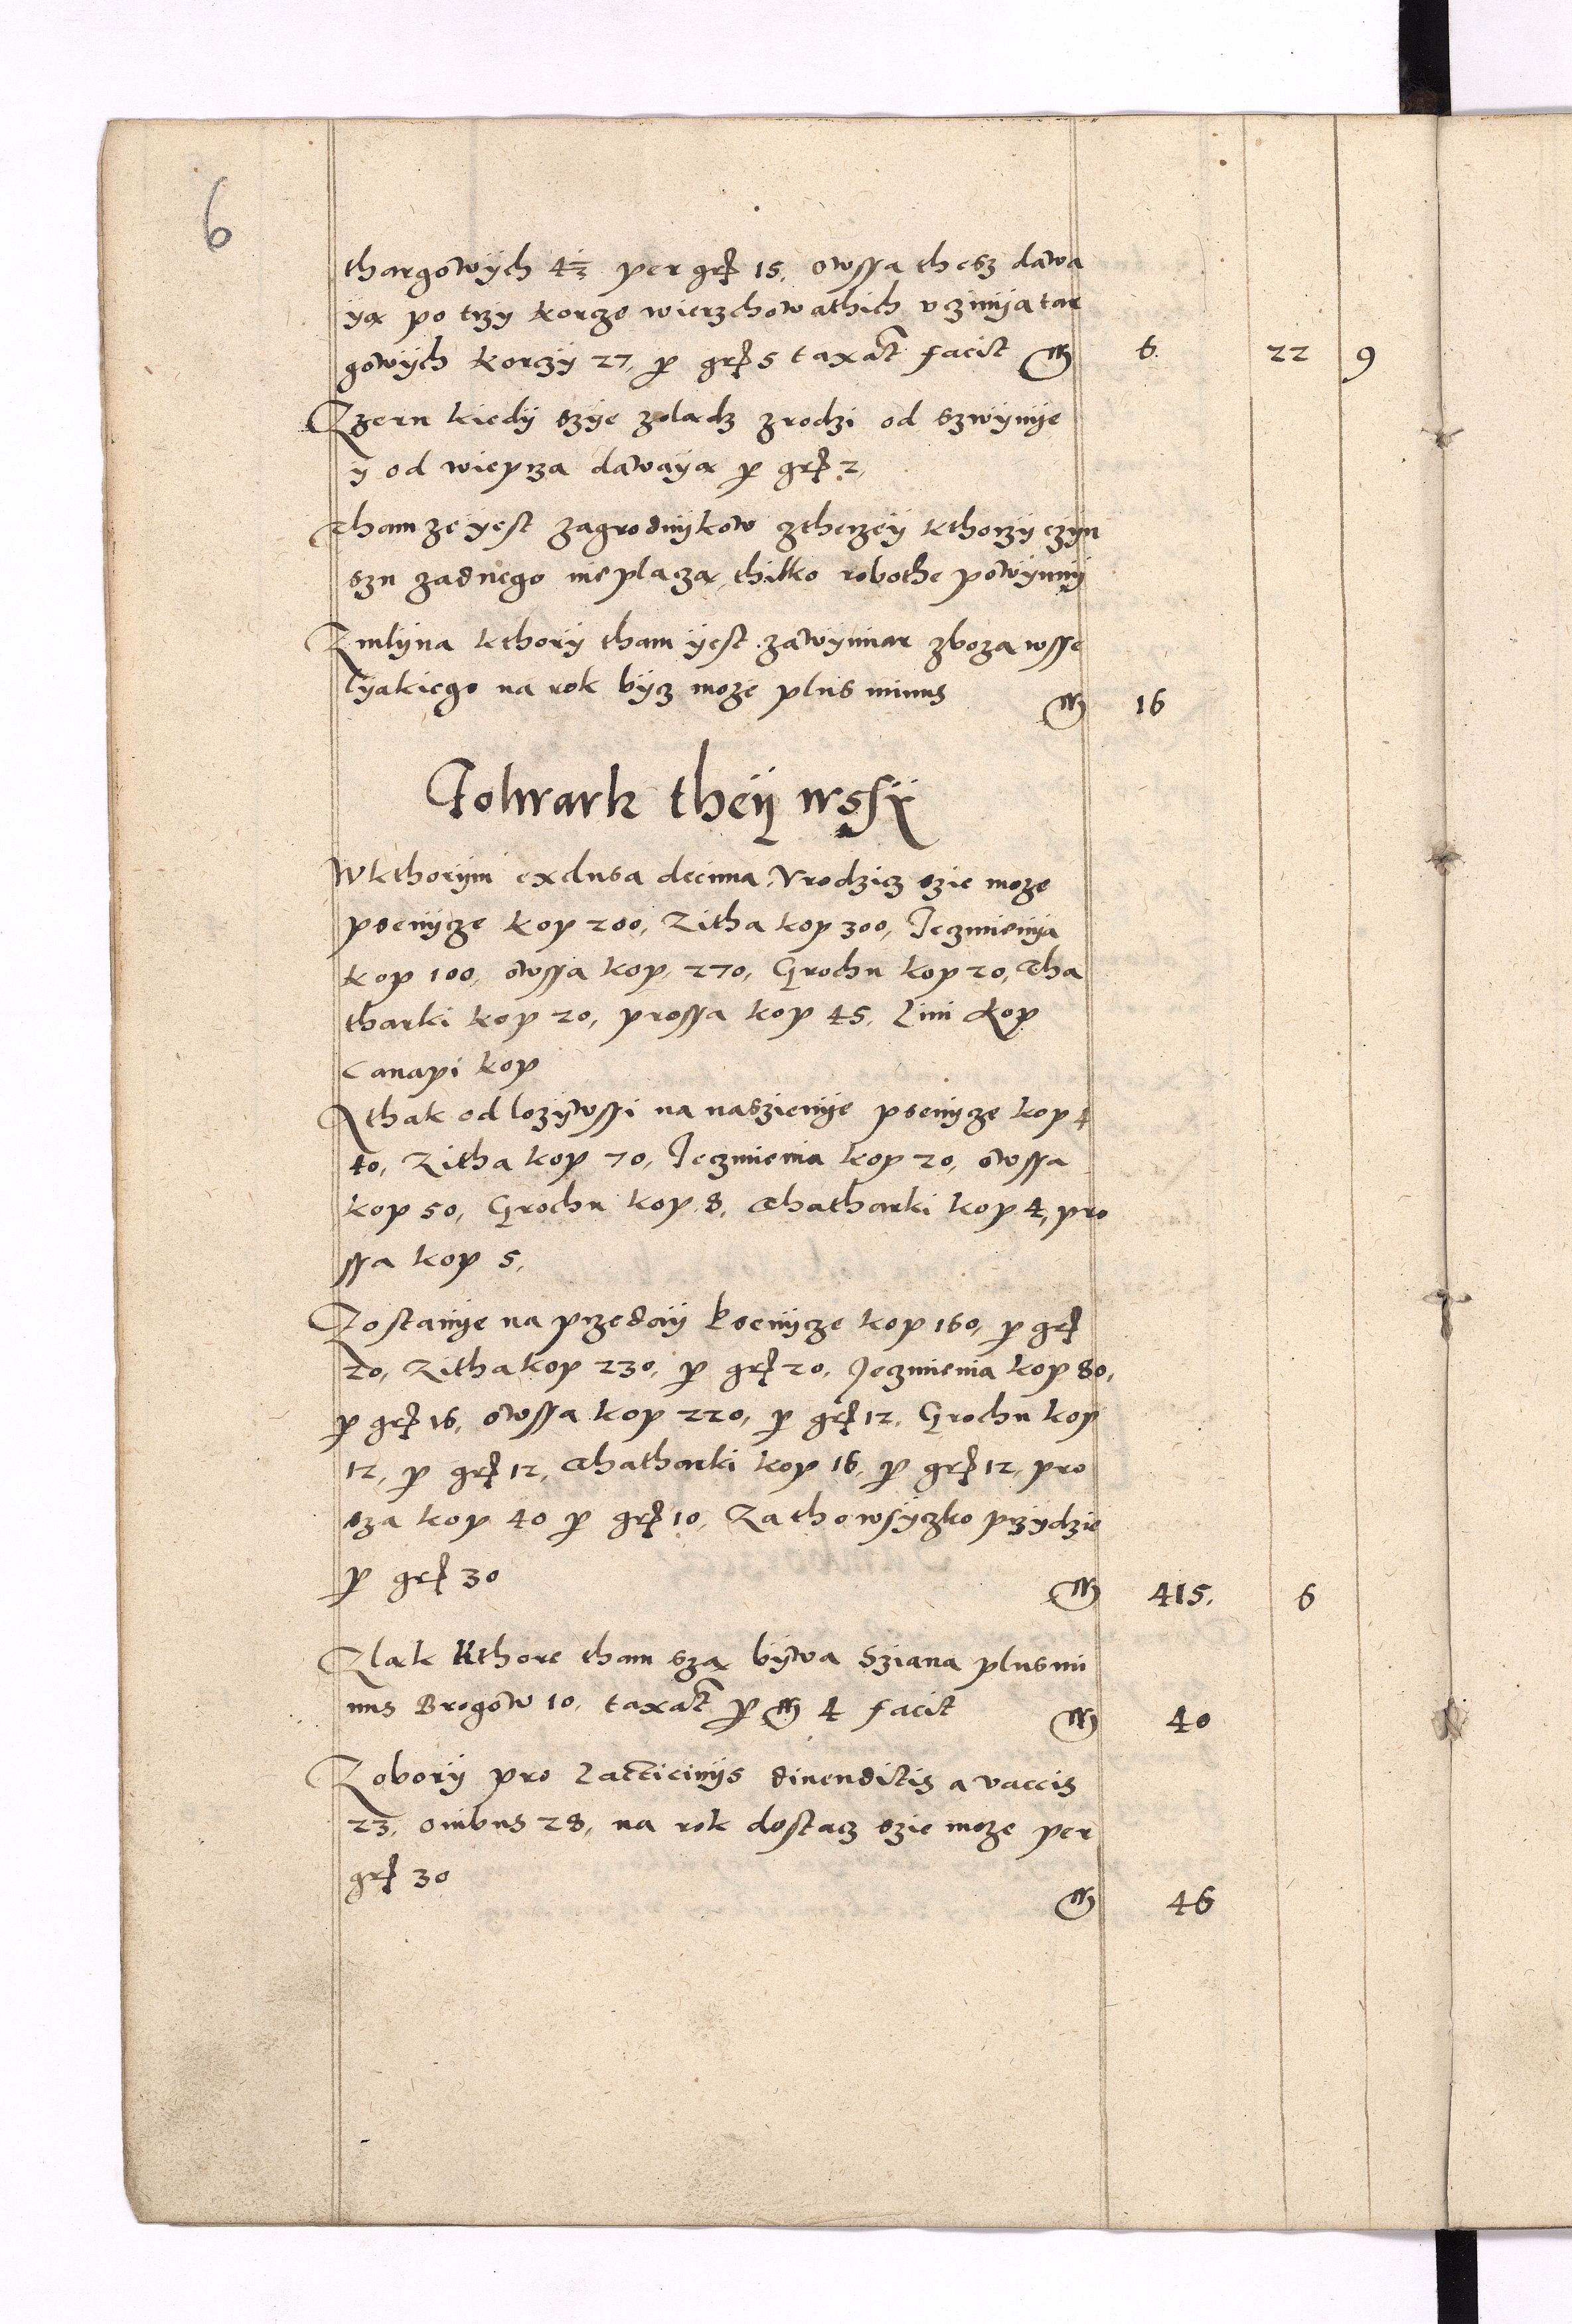 6
thargowych 4½ per grſ 15, owssa thesz dawa
ya po trzy korcze wierzchowathich vczinija tar
gowych korczy 27, per grſ 5 taxat facit M 6 22 9
Zzern kiedÿ szÿe zoladz zrodzi od szwÿnÿe
ÿ od wieprza dawaÿa per grſ 2,
Thamze ÿest zagrodnÿkow czterzeÿ kthorzÿ czÿn
szu zadnego nieplacza, thilko robothe powÿnnÿ
Zmlÿna kthorÿ tham ÿest zawÿmiar zboza wsse
lÿakiego na rok bÿcz moze plus minus M 16
Folwark theÿ wsſÿ
Wkthorÿm exclusa decima, Vrodzicz szie moze
psenÿcze kop 200, Zitha kop 300, Jeczmienÿa
kop 100, owssa kop 270, Grochu kop 20, Tha
tharki kop 20, prossa kop 45, Lini kop
Canapi kop
Athak odlozÿwssi na naszienÿe psenÿcze kop 4
40, Zitha kop 70, Jeczmienia kop 20, owssa
kop 50, Grochu kop 8, Thatharki kop 4, pro
ssa kop 5,
Zostanÿe na przedaÿ Psenÿcze kop 160, per grſ
20, Zitha kop 230, per grſ 20, Jeczmienia kop 80,
per grſ 16, owssa kop 220, per grſ 12, Grochu kop
12, per grſ 12, Thatharki kop 16, per grſ 12, pro
sza kop 40 per grſ 10, Zathowsÿczko przÿdzie
per grſ 30 M 415, 6
Zlak kthore tham sza bÿwa Sziana plus mi
nus Brogow 10, taxat per M 4 facit M 40
Zoborÿ pro lacticinÿs diuenditis a vaccis
23, ouibus 28, na rok dostacz szie moze per
grſ 30 M 46